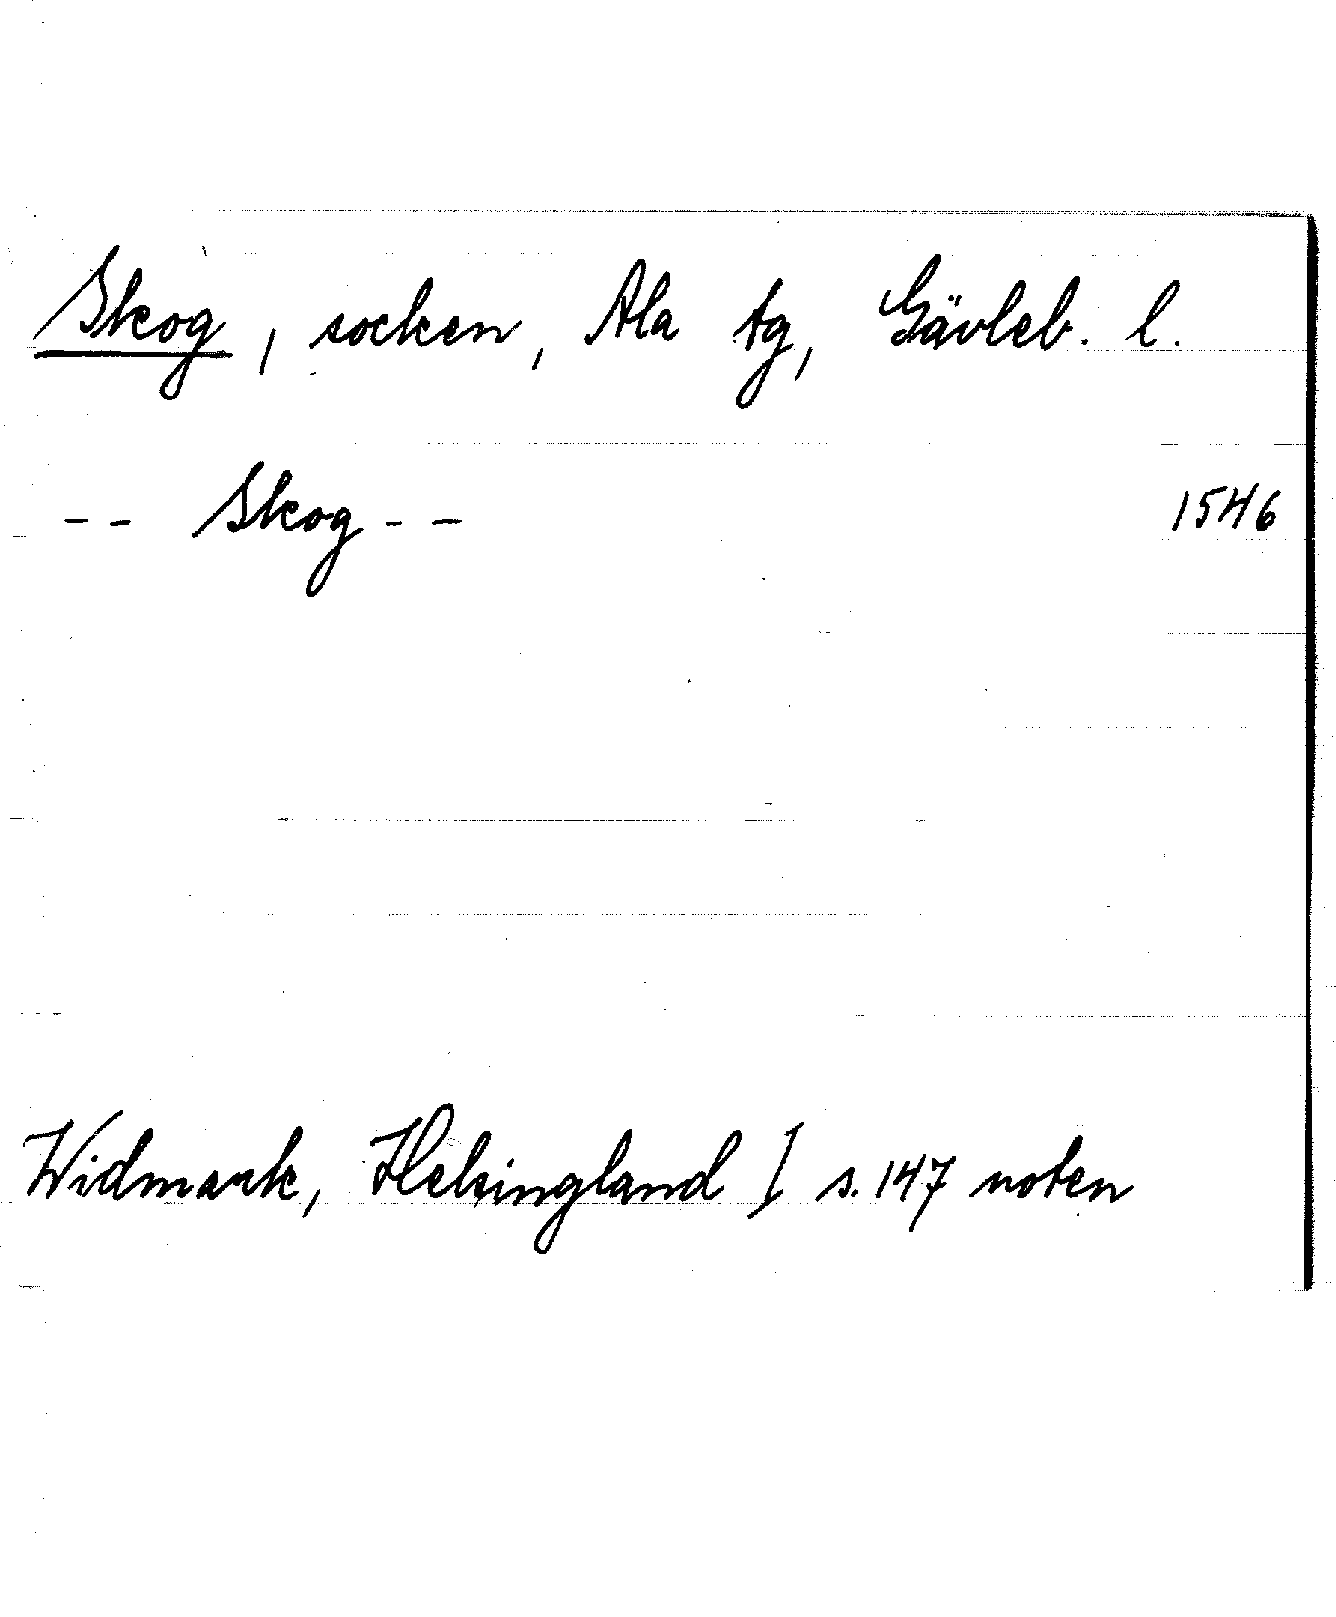 Skog, socken, Ala tg, Gävleb. l.
-- Skog -- 1546
Widmark, Helsingland I s. 147 noten